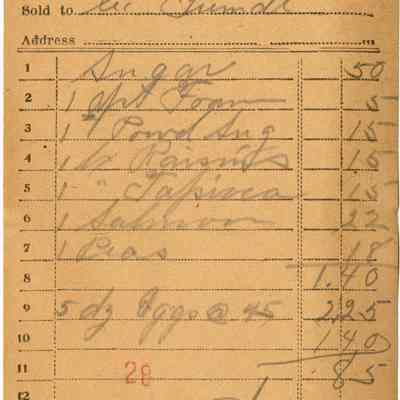 Sold to
Address
1 Sugar 50
2 1 Foam 5
3 1 " Powd Sug 15
4 1 Raisins 15
5 1 " Tapioca 15
6 1 Salmon 22
7 1 Peas 18
8 1.40
9 5 dz Eggs @ 45 2,25
10 1.40
11 28 .85
12